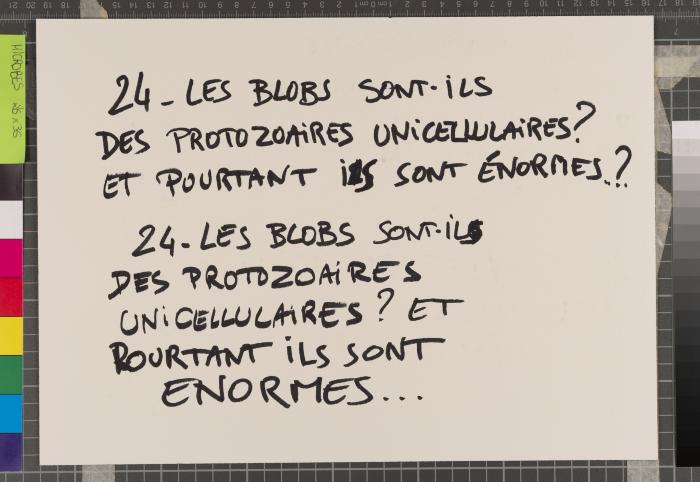 MICROBES 26 x 36
24_LES BLOBS SONT-iLS
DES PROTOZOAiRES UNiCELLULAiRES?
ET POURTANT iLS SONT ÉNORMES..?
24-LES BLOBS SONT-iLS
DES PROTOZOAiRES
UNiCELLULAiRES? ET
POURTANT iLS SONT
ENORMES...